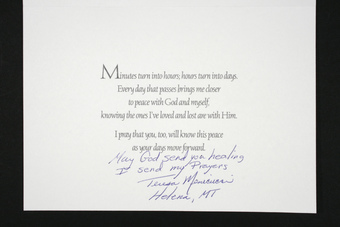 Minutes turn into hours; hours turn into days.
Every day that passes brings me closer
to peace with God and myself,
knowing the ones I've loved and lost are with Him.
I pray that you, too, will know this peace
as your days move forward.
May God send you healing
I send my Prayers
Teresa
Helena, MT